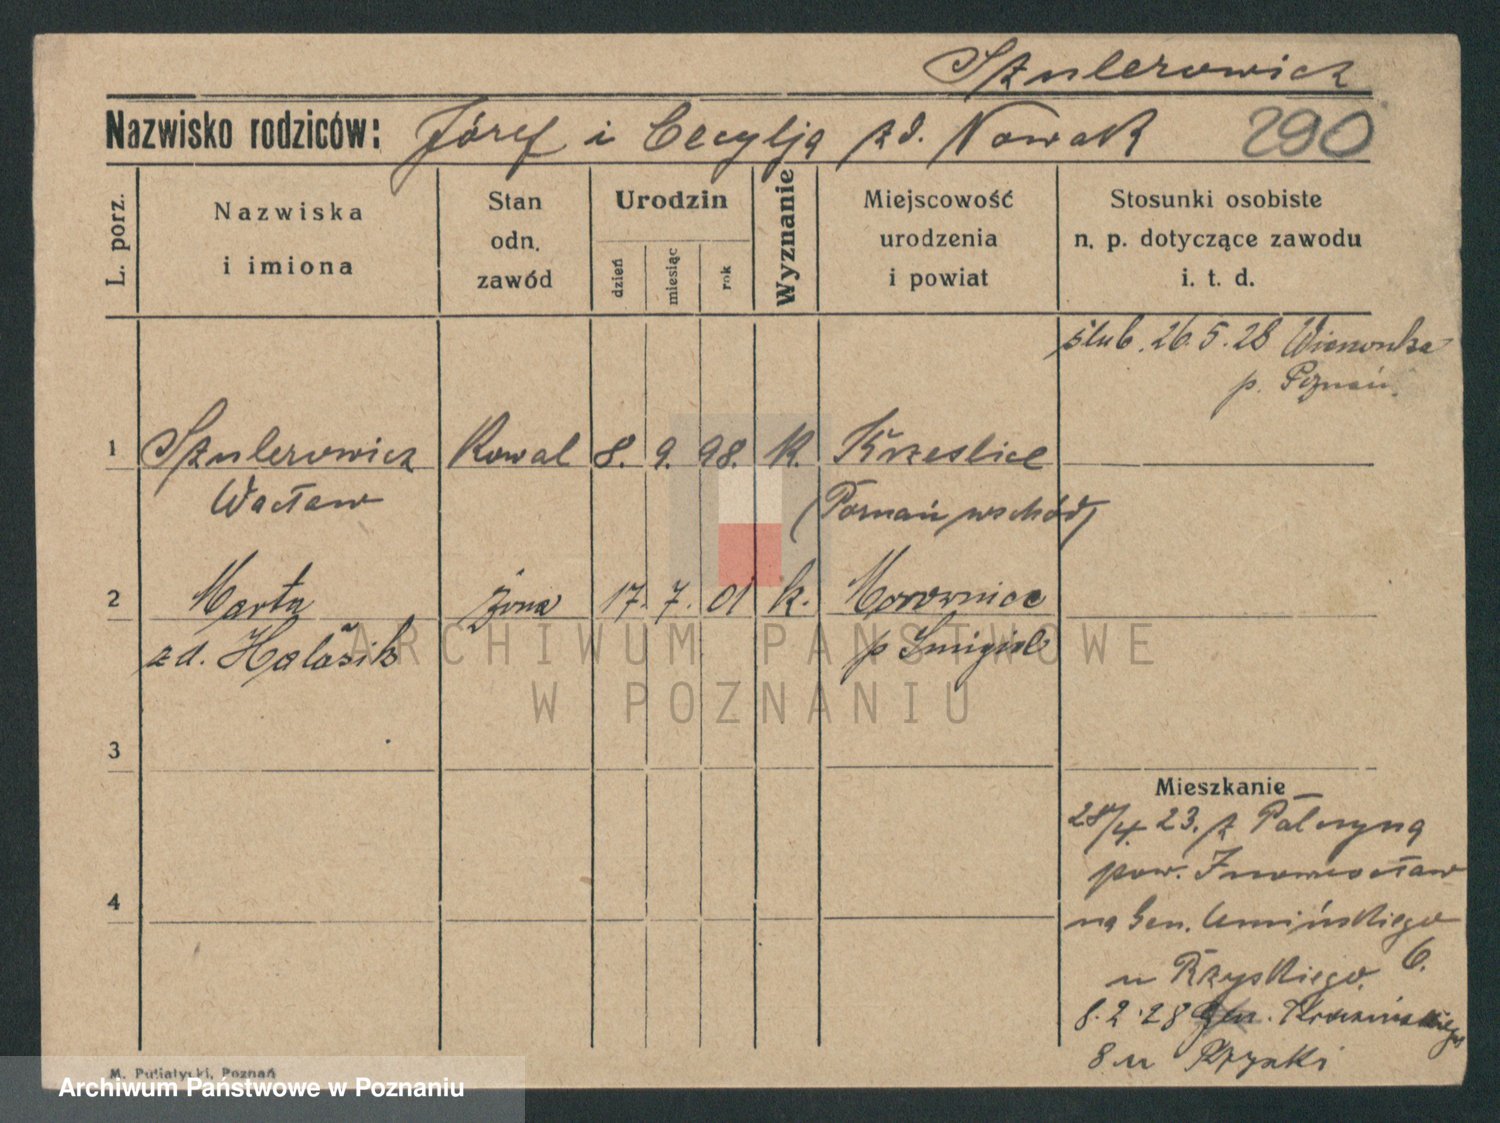 Szulerowicz
Nazwisko rodziców: Józef i Cecylją zd. Nowak 290
L. porz.
Nazwiska
i imiona
Stan
odn.
zawód
Urodzin
dzień
miesiąc
rok
Wyznanie
Miejscowość
urodzenia
i powiat
Stosunki osobiste
n. p. dotyczące zawodu
i. t. d.
ślub. 26.5.28
p. Poznań.
1 Szulerowicz Kowal 8. 9. 98. K. Krześlice
Wacław (Poznań wschód)
2 Marta żona 17. 7. 01 k.
zd. p Śmigiel
3
Mieszkanie
28/4. 23. z
pow. Inowrocław
na Gen. Umińskiego
u 6.
8.2.28
8 u
4
M. Putiatycki, Poznań
ARCHIWUM PAŃSTWOWE
W POZNANIU
Archiwum Państwowe w Poznaniu